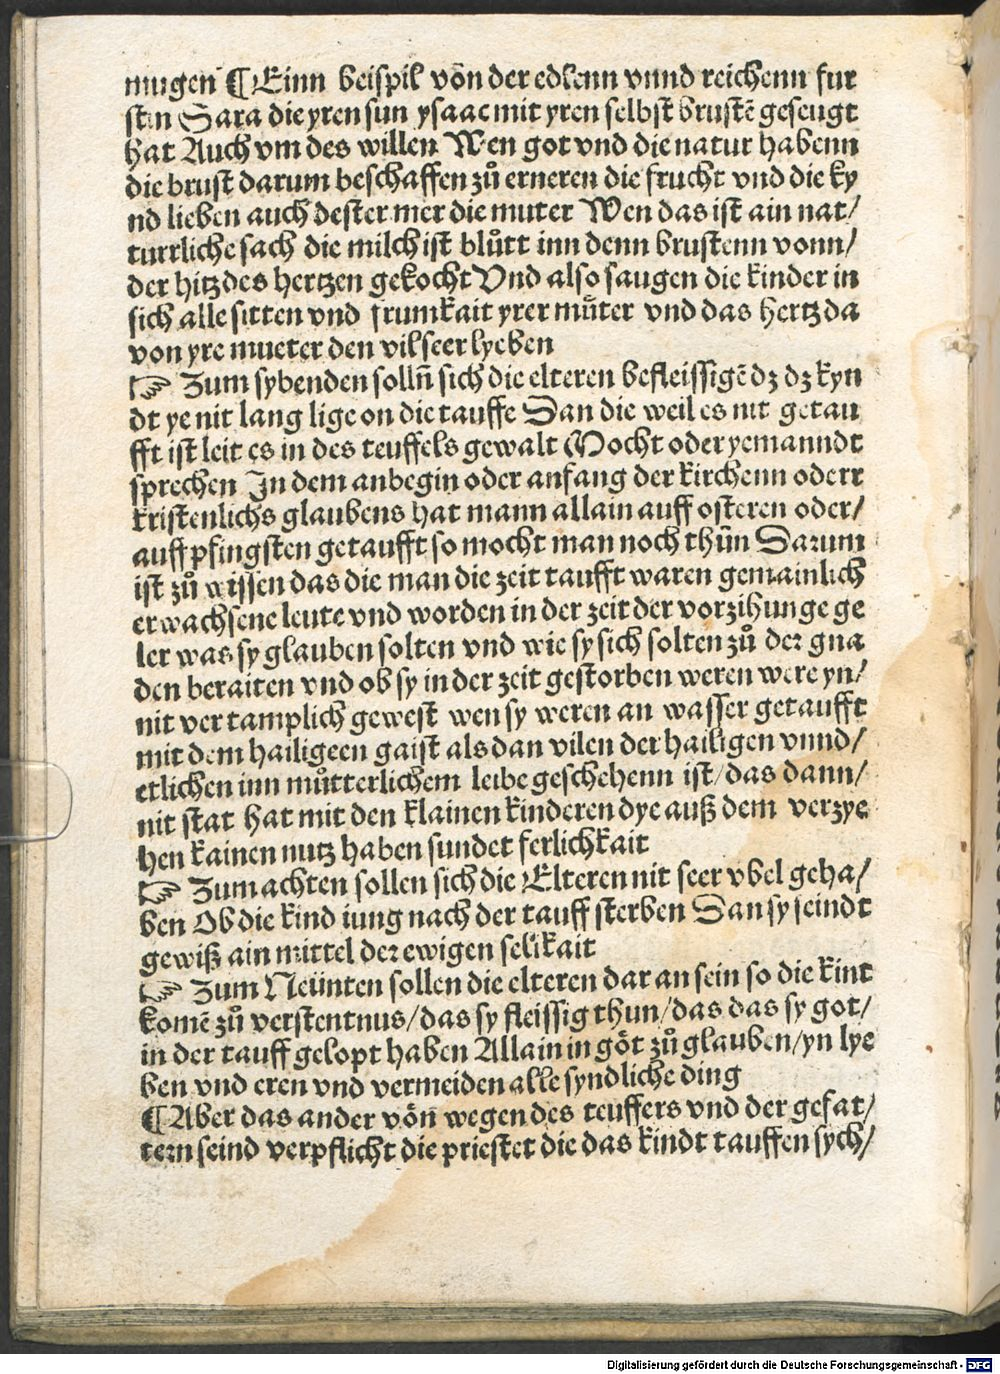 mugen ¶ Einn beispil võn der edlenn vnnd reichenn fur
sten Sara die yren sun ysaac mit yren selbst brustē geseugt
hat Auch vm des willen Wen got vnd die natur habenn
die brust darum beschaffen zů erneren die frucht vnd die ky
nd lieben auch dester mer die muter Wen das ist ain nat/
turrliche sach die milch ist blůtt inn denn brustenn vonn/
der hitz des hertzen gekocht Vnd also saugen die kinder in
sich alle sitten vnd frumkait yrer můter vnd das hertz da
von yre mueter den vil seer lyeben
☞ Zum sybenden solln̄ sich die elteren befleissigē dz dz kyn
dt ye nit lang lige on die tauffe Dan die weil es nit getau
fft ist leit es in des teuffels gewalt Mocht oder yemanndt
sprechen In dem anbegin oder anfang der kirchenn oderr
kristenlichs glaubens hat mann allain auff osteren oder/
auff pfingsten getaufft so mocht man noch thůn Darum
ist zů wissen das die man die zeit taufft waren gemainlich
erwachsene leute vnd worden in der zeit der vorzihunge ge
ler was sy glauben solten vnd wie sy sich solten zů der gna
den beraiten vnd ob sy in der zeit gestorben weren were yn/
nit vertamplich gewest wen sy weren an wasser getaufft
mit dem hailigeen gaist als dan vilen der hailigen vnnd/
etlichen inn můtterlichem leibe geschehenn ist/das dann/
nit stat hat mit den klainen kinderen dye auß dem verzye
hen kainen nutz haben sundet ferlichkait
☞ Zum achten sollen sich die Elteren nit seer vbel geha/
ben Ob die kind iung nach der tauff sterben Dan sy seindt
gewiß ain mittel der ewigen selikait
☞ Zum Neünten sollen die elteren dar an sein so die kint
komē zů verstentnus/das sy fleissig thun/das das sy got/
in der tauff gelopt haben Allain in göt zů glauben/yn lye
ben vnd eren vnd vermeiden alle syndliche ding
¶ Aber das ander võn wegen des teuffers vnd der gefat/
tern seind verpflicht die priestet die das kindt tauffen sych/
Digitalisierung gefördert durch die Deutsche Forschungsgemeinschaft - DFG